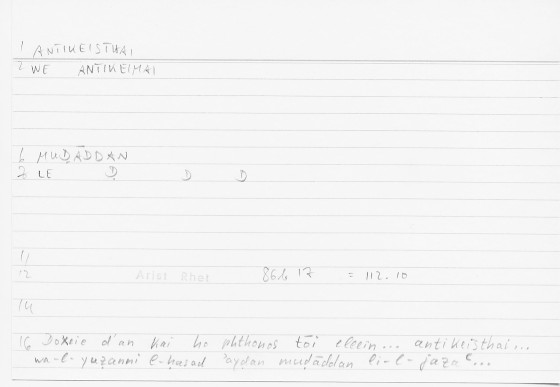 1 ANTIKEISTHAI
2 WE ANTIKEIMAI
6 MUḌĀDDAN
7 LE Ḍ D D
11
12 Arist Rhet 86b 17 = 112.10
14
16 Dokeie d'an kai ho phthonos tōi eleein... antikeisthai...
wa-l-yuẓanni l-ḥasad ʾayḍan muḍāddan li-l-jazaʿ...